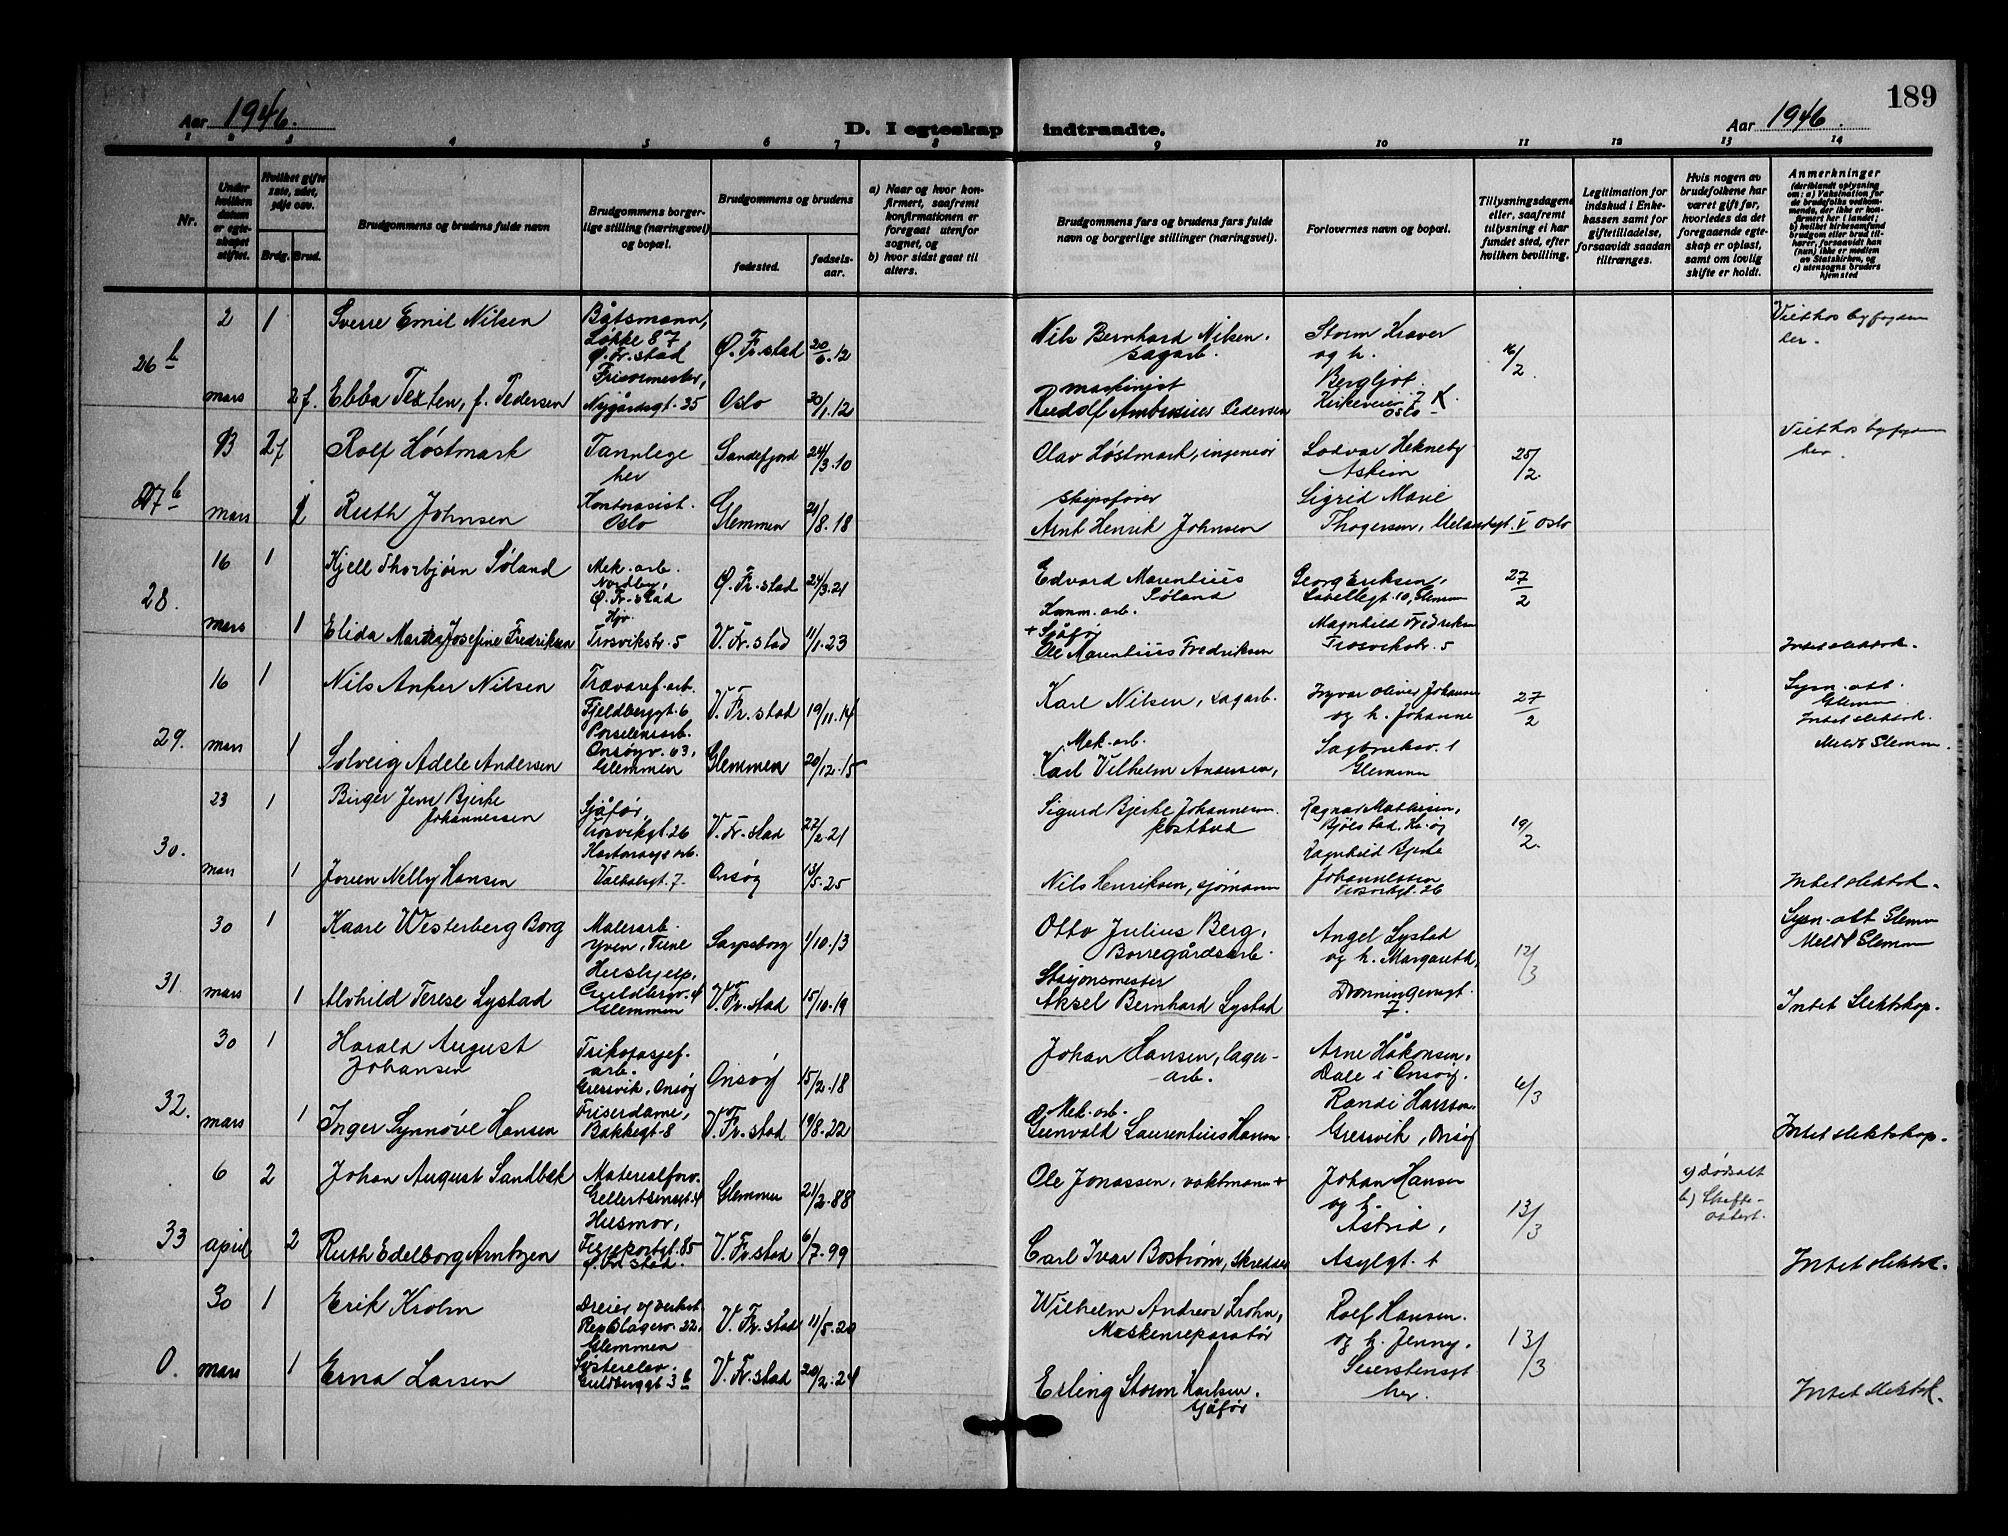 189
Aar 1946.
D. I egteskap indtraadte.
Aar 1946.
1 2 3 4 5 6 7 8 9 10 11 12 13 14
Nr.
Under hvilken datum er egteskapet stiftet.
Hvilket gifte 1ste, 2det, 3dje osv.
Brdg. Brud.
Brudgommens og brudens fulde navn
Brudgommens borgerlige stilling (næringsvei) og bopæl.
Brudgommens og brudens
fødested.
fødselsaar.
a) Naar og hvor konfirmert, saafremt konfirmationen er foregaat utenfor sognet, og
b) hvor sidst gaat til alters.
Brudgommens fars og brudens fars fulde navn og borgerlige stillinger (næringsvei).
Forlovernes navn og bopæl.
Tillysningsdagene eller, saafremt tillysning ei har fundet sted, efter hvilken bevilling.
Legitimation for indskud i Enkekassen samt for giftetilladelse, forsaavidt saadan tiltrænges.
Hvis nogen av brudefolkene har været gift før, hvorledes da det foregaaende egteskap er opløst, samt om lovlig skifte er holdt.
Anmerkninger
(deriblandt oplysning om: a) Vaksination for de brudefolks vedkommende, der ikke er konfirmert her i landet; b) hvilket kirkesamfund brudgom eller brud tilhører, forsaavidt han (hun) ikke er medlem av Statskirken, og c) utensogns bruders hjemsted
26 b
2 mars
1
Sverre Emil Nilsen
Båtsmann, Løkke 87 Ø. Fr. stad
Ø. Fr. stad
20/6.12
Nils Bernhard Nilsen. sagarb.
Storm Kraver og h. Bergljot.
16/2
Viet hos byfogden her.
2 f.
Ebba Texten, f. Pedersen
Frisørmester, Nygårdsgt. 35
Oslo
30/1.12
maskinist Rudolf Ambrosius Pedersen
Kirkeveien 7 Oslo
27 b
13 mars
2 f
Rolf Løstmark
Tannlege her
Sandefjord
24/3.10
Olav Løstmark, ingeniør
Lodvar Hekneby Askim
25/2.
Viet hos byfogden her.
1
Ruth Johnsen
Kontorasist. Oslo
Glemmen
21/8.18
skipsfører Arnt Henrik Johnsen
Sigrid Marie Thogersen, Oslo
28.
16 mars
1
Kjell Thorbjørn Søland
Mek. arb. Nordby, Ø. Fr. stad
Ø. Fr. stad
24/3.21
Edvard Marentius Søland Komm. arb.
Georg Eriksen, 10, Glemm
27/2
1
Elida Martha Josefine Fredriksen
Hjv. Trosvikstr. 5
V. Fr. stad
11/1.23
+ Sjåfør Ole Marentius Fredriksen
Magnhild Fredriksen Trosvikstr. 5
Intet slektsk.
29.
16 mars
1
Nils Anker Nilsen
Trævaref. arb. Fjeldberggt. 6
V. Fr. stad
19/11.14
Karl Nilsen, sagarb.
Ingvar Oliver Johansen og h. Johanne
27/2
Sysn. att. Glemm Intet slektsk. Meldt Glemm.
1
Solveig Adele Andersen
Porselensarb. Onsøyv. 63, Glemmen
Glemmen
20/12.15
Mek. arb. Karl Vilhelm Andersen,
Sagbruksv. 1 Glemmen
30.
23 mars
1
Birger Jens Bjerke Johannessen
Sjåfør, Trosvikgt. 26
V. Fr. stad
22/2.21
Sigurd Bjerke Johannessen postbud
Ragnar Mathisen, Bjølstad, Kr. øy
19/2.
1
Joren Nelly Hansen
Valhalsgt. 7.
Onsøy
13/5.25
Nils Henriksen, sjømann
Ragnhild Bjerke Johannessen Trosvikgt. 26
Intet slektsk.
31.
30 mars
1
Kaare Westerberg Borg
Malerarb. Yven, Tune
Sarpsborg
1/10.13
Otto Julius Berg, Borregårdsarb.
Angel Lystad og h. Margareth,
12/3
Sysn. att Glemm Meldt Glemm
1
Alvhild Terese Lystad
Hushjelp, Guldbergv. 4 Glemmen
V. Fr. stad
15/10.19
Stasjonsmester Aksel Bernhard Lystad
Dronningensgt. 7.
Intet Slektskap.
32.
30 mars
1
Harald August Johansen
Trikotasjef. arb. Gressvik, Onsøy
Onsøy
15/2.18
Johan Hansen, lagerarb.
Arne Håkonsen, Dale i Onsøy.
6/3
1
Inger Synnøve Hansen
Friserdame, Bakkegt. 8
V. Fr. stad
19/8.22
Mek. arb. Gunvald Laurentius Hansen
Randi Hansen, Gressvik, Onsøy
Intet slektskap.
33
6 april
2
Johan August Sandbæk
Materialforv. Gellertsensgt. 4
Glemmen
21/2.88
Ole Jonassen, vaktmann +
Johan Hansen og h. Astrid,
13/3
a) dødsatt b) Skifteattest.
2
Ruth Edelborg Arntzen
Husmor, 85 Ø. Fr. stad.
V. Fr. stad
6/7.99
Carl Ivar Bostrøm, skredder
Asylgt. 1
Intet slektsk.
0.
30 mars
1
Erik Krohn
Dreier og verkst. Rep. Blagerv. 22, Glemmen
V. Fr. stad
11/5.20
Wilhelm Andreas Krohn, Maskinreparatør
Rolf Hansen. og h. Jenny.
13/3
1
Erna Larsen
Søsterelev. Guldberggt. 3 b
V. Fr. stad
20/2.24
Erling Storm Karlsen. sjåfør
Seierstensgt her.
Intet slektsk.